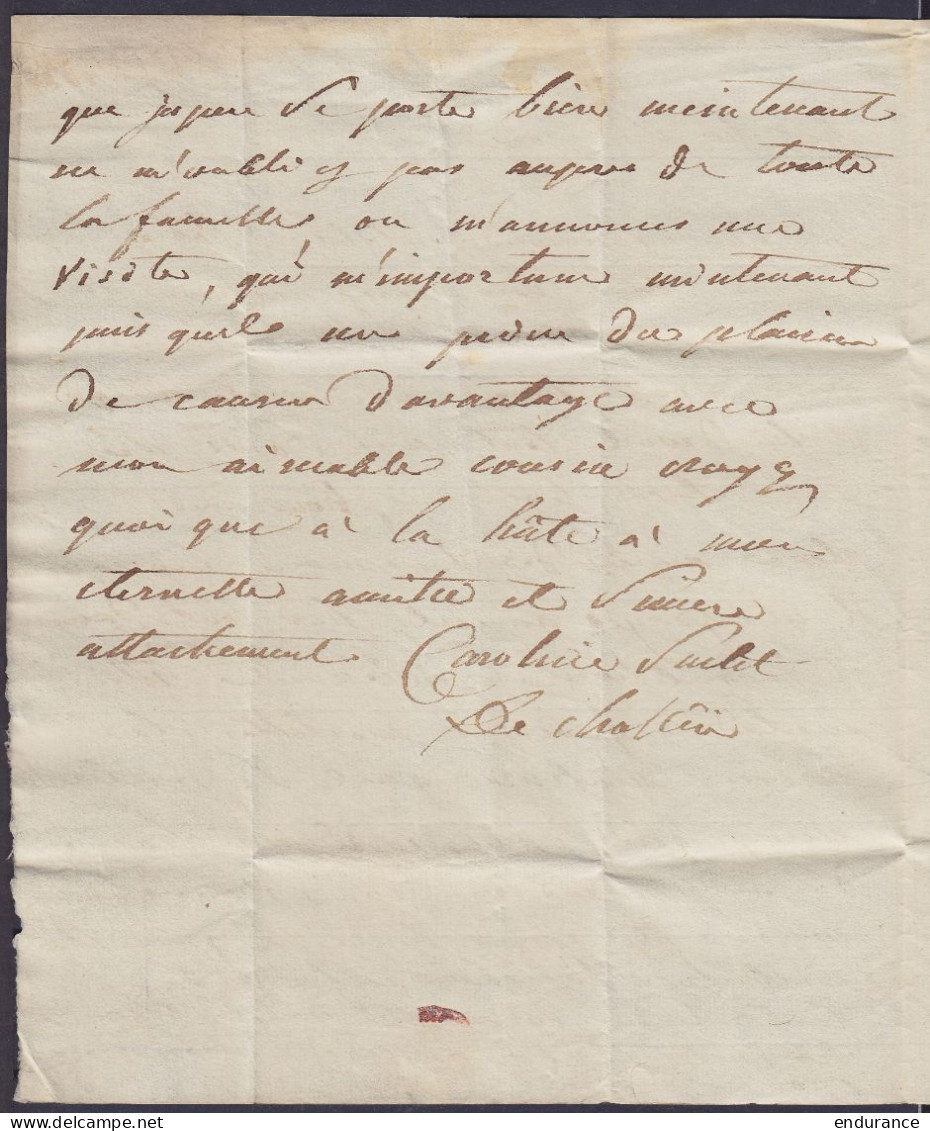 que jespere se porte bien meintenant
ne m'oubli ez pas aupres de toute
la famille on m'annonces une
visite, qui m'importune mintenant
puis quele me prive du plaisir
de causer davantage avec
mon aimable cousine croyez
quoi que à la hâte à mon
eternelle amitie et sincere
attachement Caroline
De
endurance